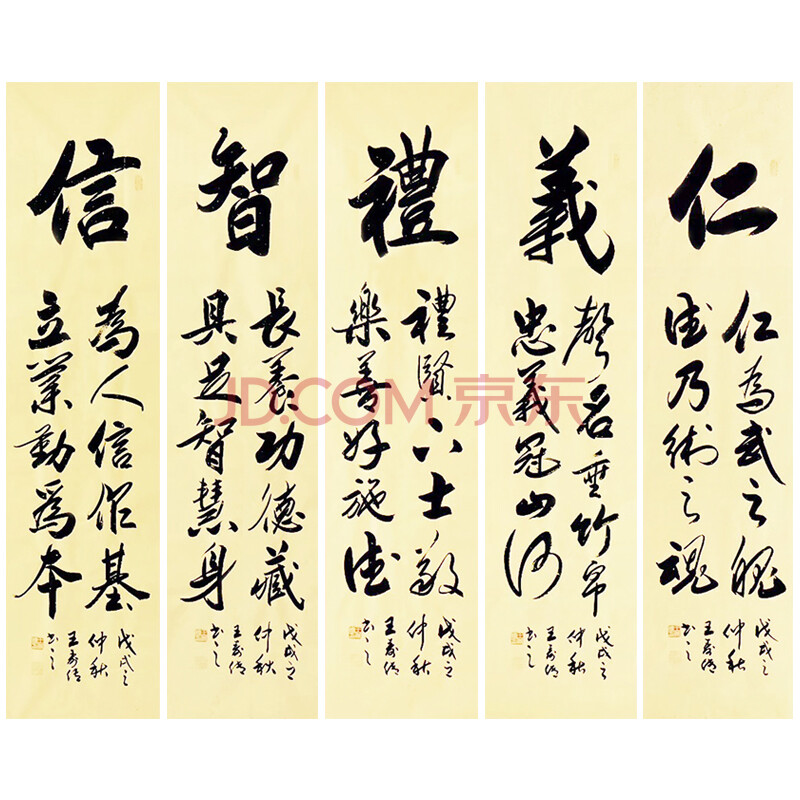 仁
仁為武之魄
德乃術之魂
戊戌之
仲秋
書之
義
聲名垂竹帛
忠義冠山河
戊戌之
仲秋
書之
禮
禮賢下士敬
樂善好施德
戊戌之
仲秋
書之
智
長養功德藏
具足智慧身
戊戌之
仲秋
書之
信
為人信作基
立業勤為本
戊戌之
仲秋
書之
JD.COM 京东